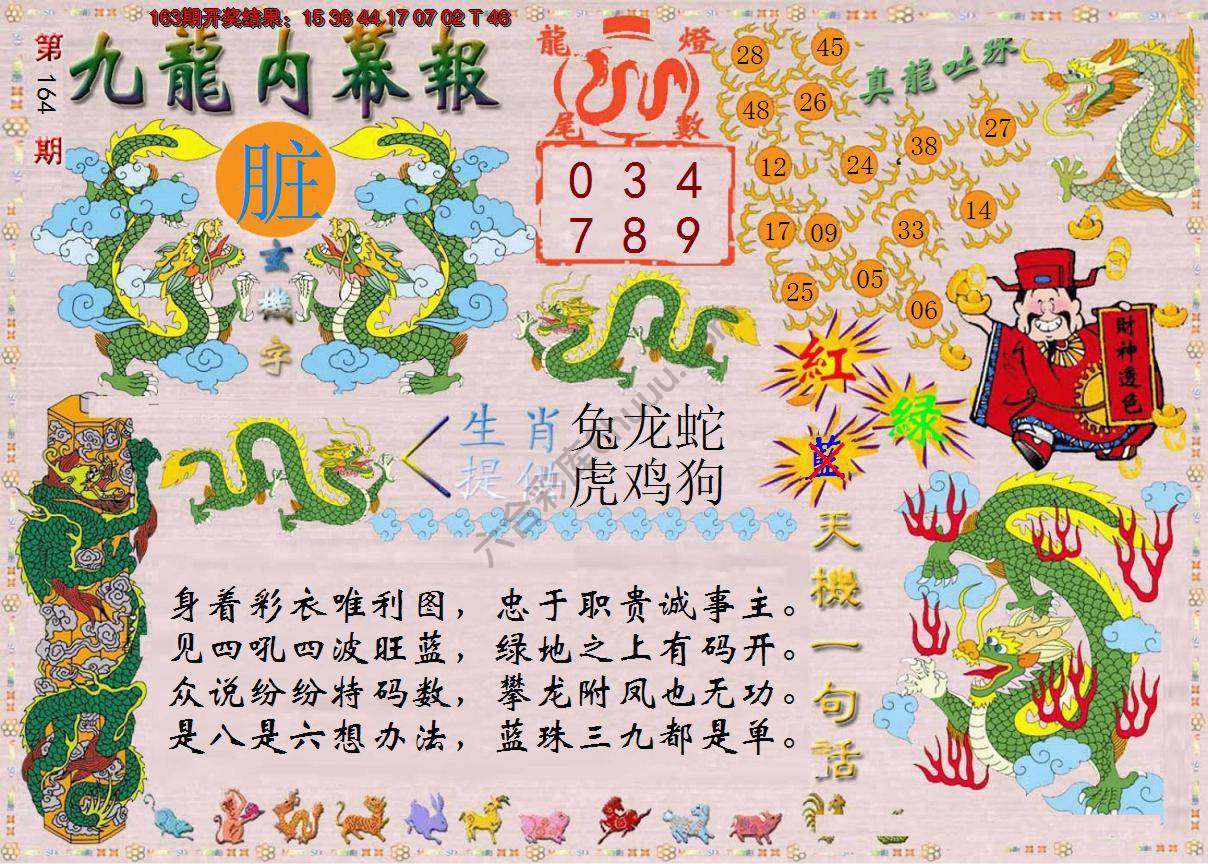 163期开奖结果：15 36 44 17 07 02 T 46
第164期
九龍内幕報
脏
玄機字
龍燈
尾數
0 3 4
7 8 9
真龍吐珠
28 45
48 26
12 24 38 27
17 09 33 14
25 05 06
財神透色
紅
綠
藍
生肖
提供
兔龙蛇
虎鸡狗
天機一句話
身着彩衣唯利图，忠于职贵诚事主。
见四吼四波旺蓝，绿地之上有码开。
众说纷纷特码数，攀龙附凤也无功。
是八是六想办法，蓝珠三九都是单。